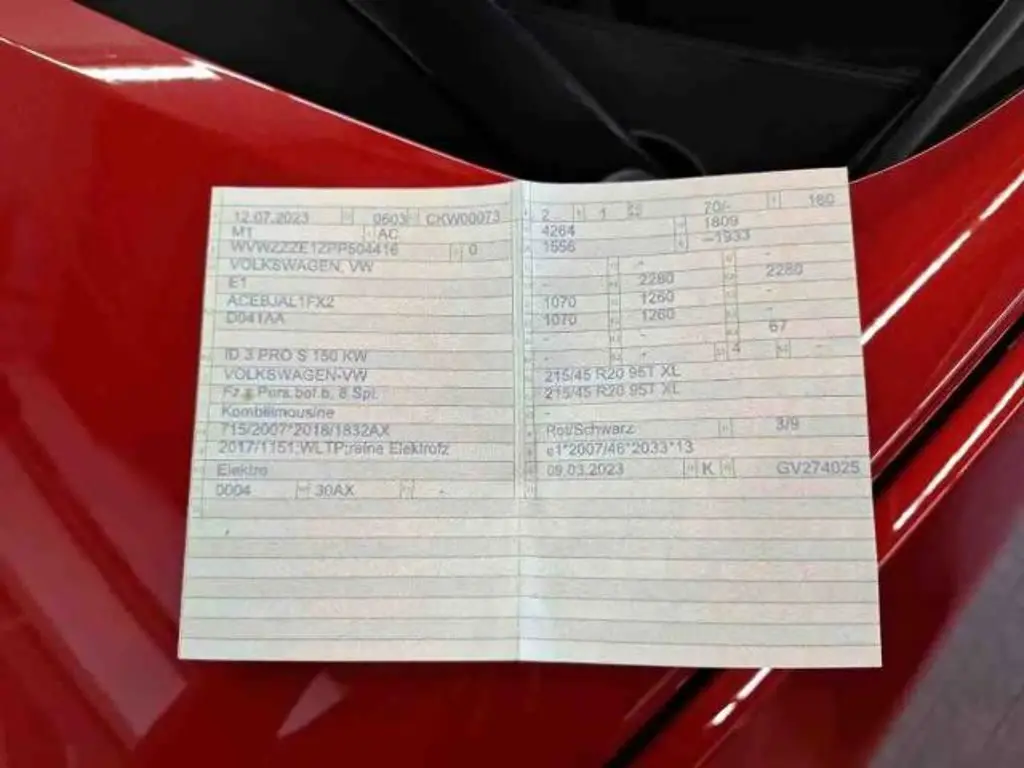 12.07.2023 0603 CKW00073
M1 AC
WVWZZZE1ZPP504416 0
VOLKSWAGEN, VW
E1
ACEBJAL1FX2
D041AA
ID 3 PRO S 150 KW
VOLKSWAGEN-VW
Fz.z.Pers.bef.b. 8 Spl.
Kombilimousine
715/2007*2018/1832AX
2017/1151;WLTP;reine Elektrofz
Elektro
0004 30AX -
2 1 70/- 160
4264 1809
1556 -1933
- -
- 2280 2280
1070 1260 -
1070 1260 -
- - 67
- - 4 -
215/45 R20 95T XL
215/45 R20 95T XL
-
Rot/Schwarz 3/9
e1*2007/46*2033*13
09.03.2023 K GV274025